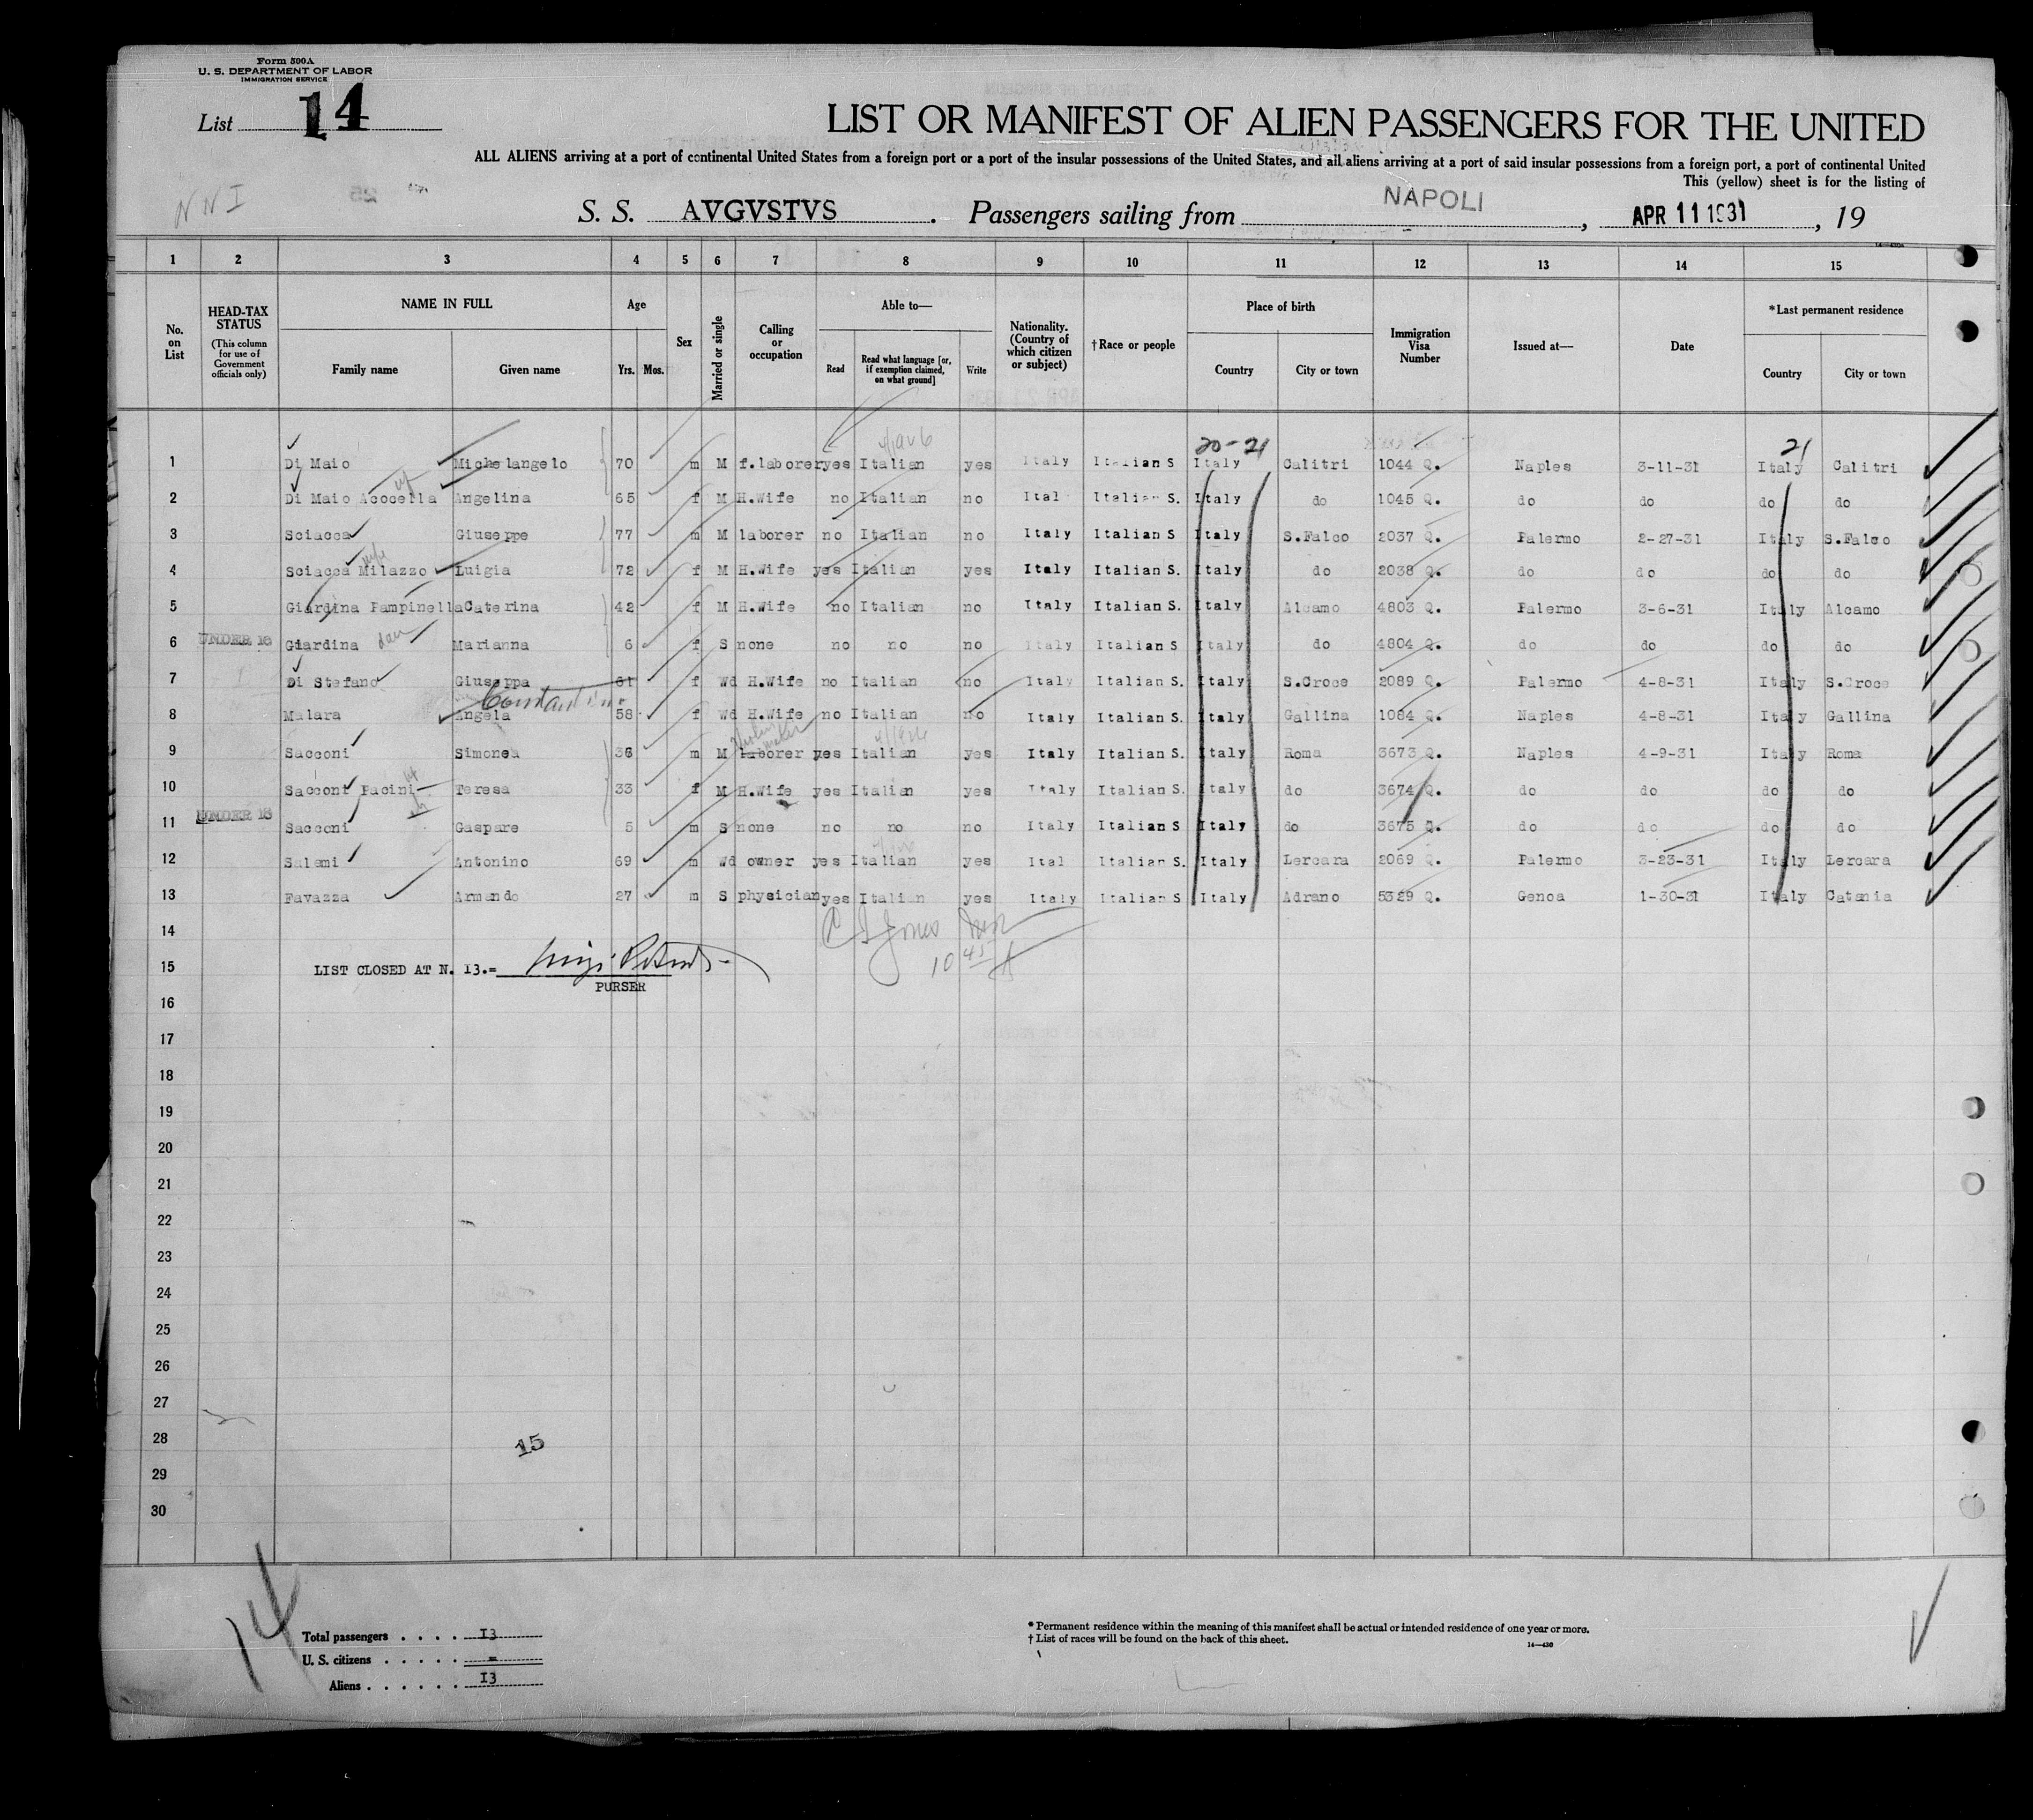 Form 500A
U. S. DEPARTMENT OF LABOR
IMMIGRATION SERVICE
List 14
LIST OR MANIFEST OF ALIEN PASSENGERS FOR THE UNITED
ALL ALIENS arriving at a port of continental United States from a foreign port or a port of the insular possessions of the United States, and all aliens arriving at a port of said insular possessions from a foreign port, a port of continental United
This (yellow) sheet is for the listing of
N N I
S. S. AVGVSTVS. Passengers sailing from NAPOLI, APR 11 1931, 19
1 2 3 4 5 6 7 8 9 10 11 12 13 14 15
No. on List
HEAD-TAX STATUS
(This column for use of Government officials only)
NAME IN FULL
Family name Given name
Age
Yrs. Mos.
Sex
Married or single
Calling or occupation
Able to—
Read
Read what language [or, if exemption claimed, on what ground]
Write
Nationality. (Country of which citizen or subject)
†Race or people
Place of birth
Country City or town
Immigration Visa Number
Issued at—
Date
*Last permanent residence
Country City or town
20-21 21
1 Di Maio Michelangelo 70 m M f.laborer yes Italian yes Italy Italian S Italy Calitri 1044 Q. Naples 3-11-31 Italy Calitri
2 Di Maio Acocella Angelina 65 f M H.Wife no Italian no Ital Italian S. Italy do 1045 Q. do do do do
3 Sciacca Giuseppe 77 m M laborer no Italian no Italy Italian S Italy S.Falco 2037 Q. Palermo 2-27-31 Italy S.Falco
wife
4 Sciacca Milazzo Luigia 72 f M H.Wife yes Italian yes Italy Italian S. Italy do 2038 Q. do do do do
5 Giardina Pampinella Caterina 42 f M H.Wife no Italian no Italy Italian S. Italy Alcamo 4803 Q. Palermo 3-6-31 Italy Alcamo
6 UNDER 16 Giardina dau Marianna 6 f S none no no no Italy Italian S Italy do 4804 Q. do do do do
7 Di Stefano Giuseppa 61 f Wd H.Wife no Italian no Italy Italian S. Italy S.Croce 2089 Q. Palermo 4-8-31 Italy S.Croce
8 Malara Angela 58 f Wd H.Wife no Italian no Italy Italian S. Italy Gallina 1084 Q. Naples 4-8-31 Italy Gallina
9 Sacconi Simonea 36 m M laborer yes Italian yes Italy Italian S. Italy Roma 3673 Q. Naples 4-9-31 Italy Roma
10 Sacconi Pacini Teresa 33 f M H.Wife yes Italian yes Italy Italian S. Italy do 3674 Q. do do do do
11 UNDER 16 Sacconi Gaspare 5 m S none no no no Italy Italian S Italy do 3675 Q. do do do do
12 Salemi Antonino 69 m Wd owner yes Italian yes Ital Italian S. Italy Lercara 2069 Q. Palermo 3-23-31 Italy Lercara
13 Favazza Armando 27 m S physician yes Italian yes Italy Italian S Italy Adrano 5329 Q. Genoa 1-30-31 Italy Catania
14
15 LIST CLOSED AT N. I3.=
PURSER
16
17
18
19
20
21
22
23
24
25
26
27
28
15
29
30
14
Total passengers . . . . I3
U. S. citizens . . . . . =
Aliens . . . . . . I3
* Permanent residence within the meaning of this manifest shall be actual or intended residence of one year or more.
† List of races will be found on the back of this sheet.
14—430